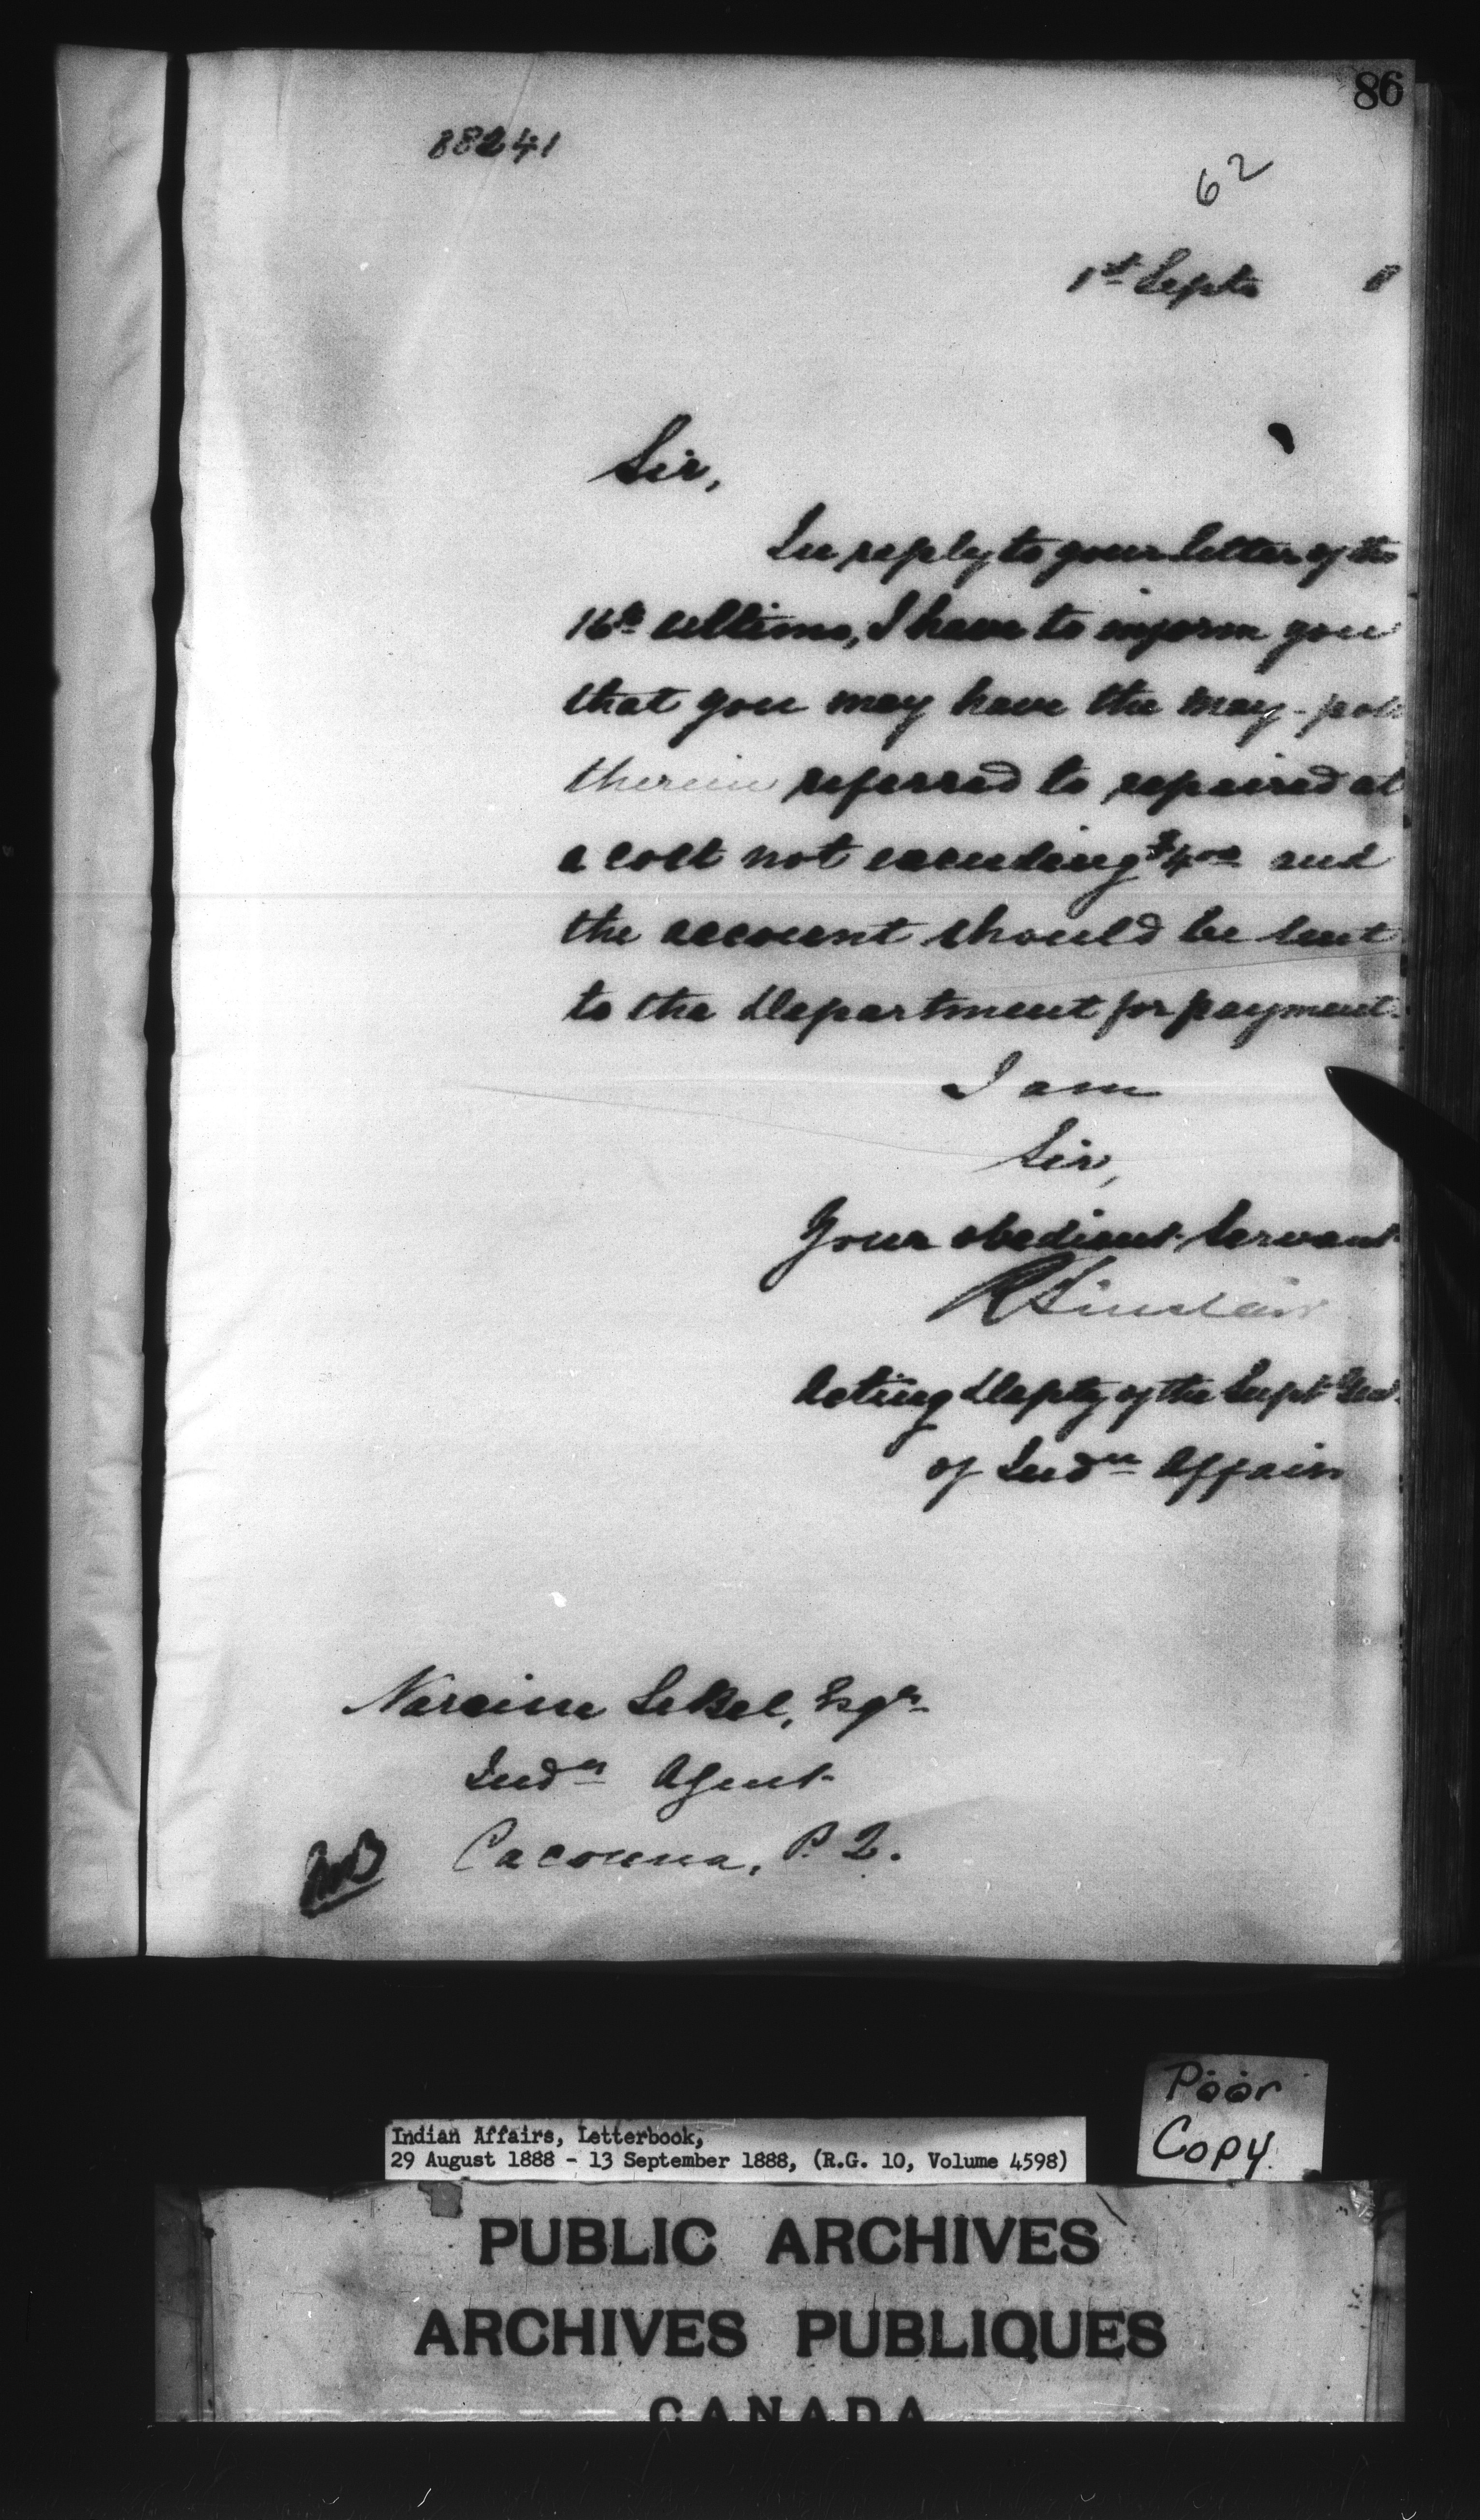 86
88241
62
1st Septr 8
Sir,
In reply to your letter of the
16th ultimo, I have to inform you
that you may have the may-pole
therein referred to repaired at
a cost not exceeding $4.00 and
the account should be sent
to the Department for payment.
I am
Sir,
Your obedient Servant
R Sinclair
Acting Depty of the Supt Genl.
of Indn Affairs
Narcisse LeBel, Esqr
Indn Agent
Cacouna, P.Q.
Poor
Copy.
Indian Affairs, Letterbook,
29 August 1888 - 13 September 1888, (R.G. 10, Volume 4598)
PUBLIC ARCHIVES
ARCHIVES PUBLIQUES
CANADA